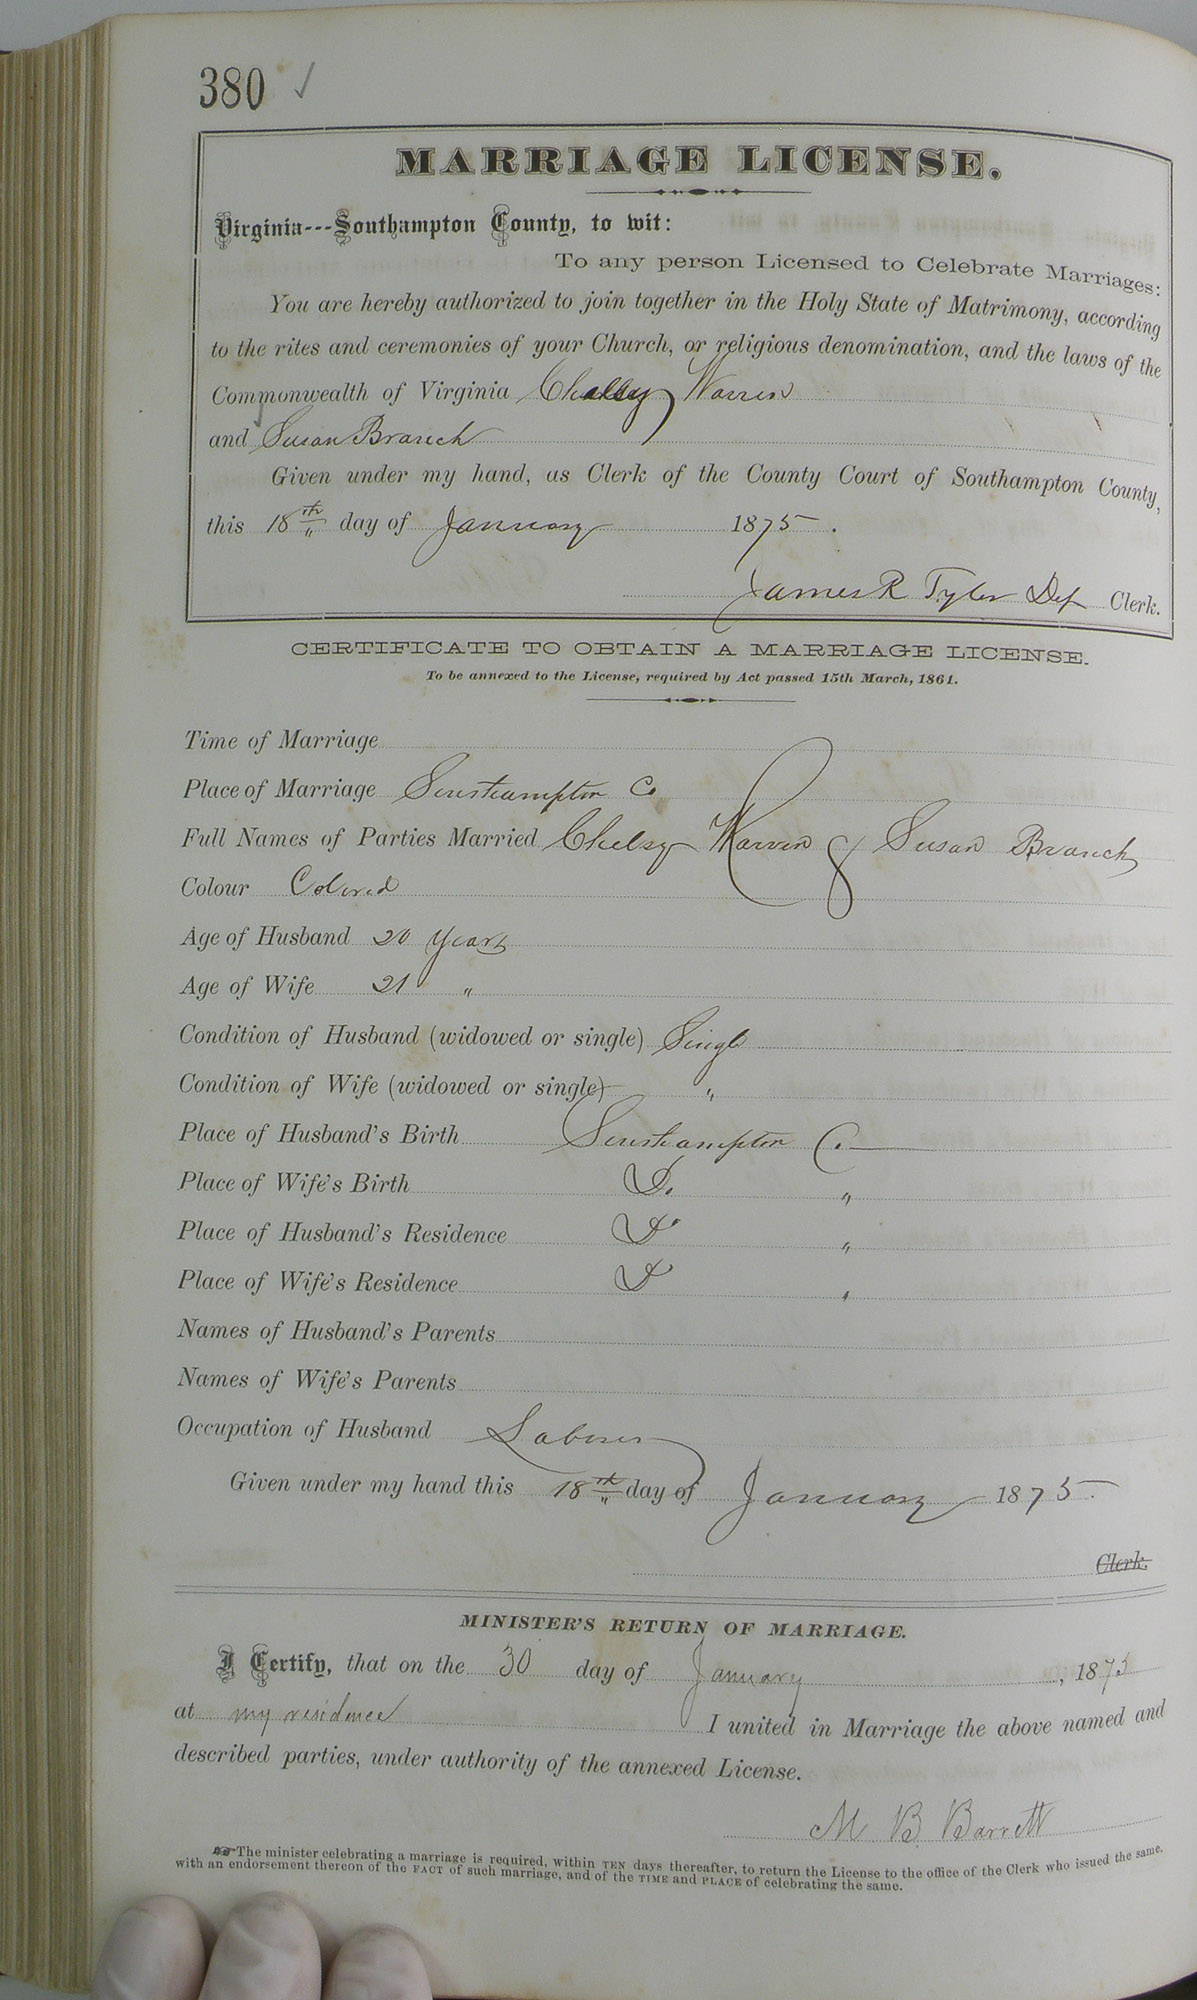 380 ✓
MARRIAGE LICENSE.
Virginia---Southampton County, to wit:
To any person Licensed to Celebrate Marriages:
You are hereby authorized to join together in the Holy State of Matrimony, according
to the rites and ceremonies of your Church, or religious denomination, and the laws of the
Commonwealth of Virginia Chelsy Warren
and Susan Branch
Given under my hand, as Clerk of the County Court of Southampton County,
this 18th day of January 1875.
James R Tyler Dep Clerk.
CERTIFICATE TO OBTAIN A MARRIAGE LICENSE.
To be annexed to the License, required by Act passed 15th March, 1861.
Time of Marriage
Place of Marriage Southampton Co
Full Names of Parties Married Chelsy Warren & Susan Branch
Colour Colored
Age of Husband 20 Years
Age of Wife 21 "
Condition of Husband (widowed or single) Single
Condition of Wife (widowed or single) "
Place of Husband's Birth Southampton Co.
Place of Wife's Birth Do. "
Place of Husband's Residence Do "
Place of Wife's Residence Do "
Names of Husband's Parents
Names of Wife's Parents
Occupation of Husband Laborer
Given under my hand this 18th day of January 1875.
Clerk.
MINISTER'S RETURN OF MARRIAGE.
I Certify, that on the 30 day of January, 1875
at my residence I united in Marriage the above named and
described parties, under authority of the annexed License.
M B Barrett
☞The minister celebrating a marriage is required, within TEN days thereafter, to return the License to the office of the Clerk who issued the same,
with an endorsement thereon of the FACT of such marriage, and of the TIME and PLACE of celebrating the same.